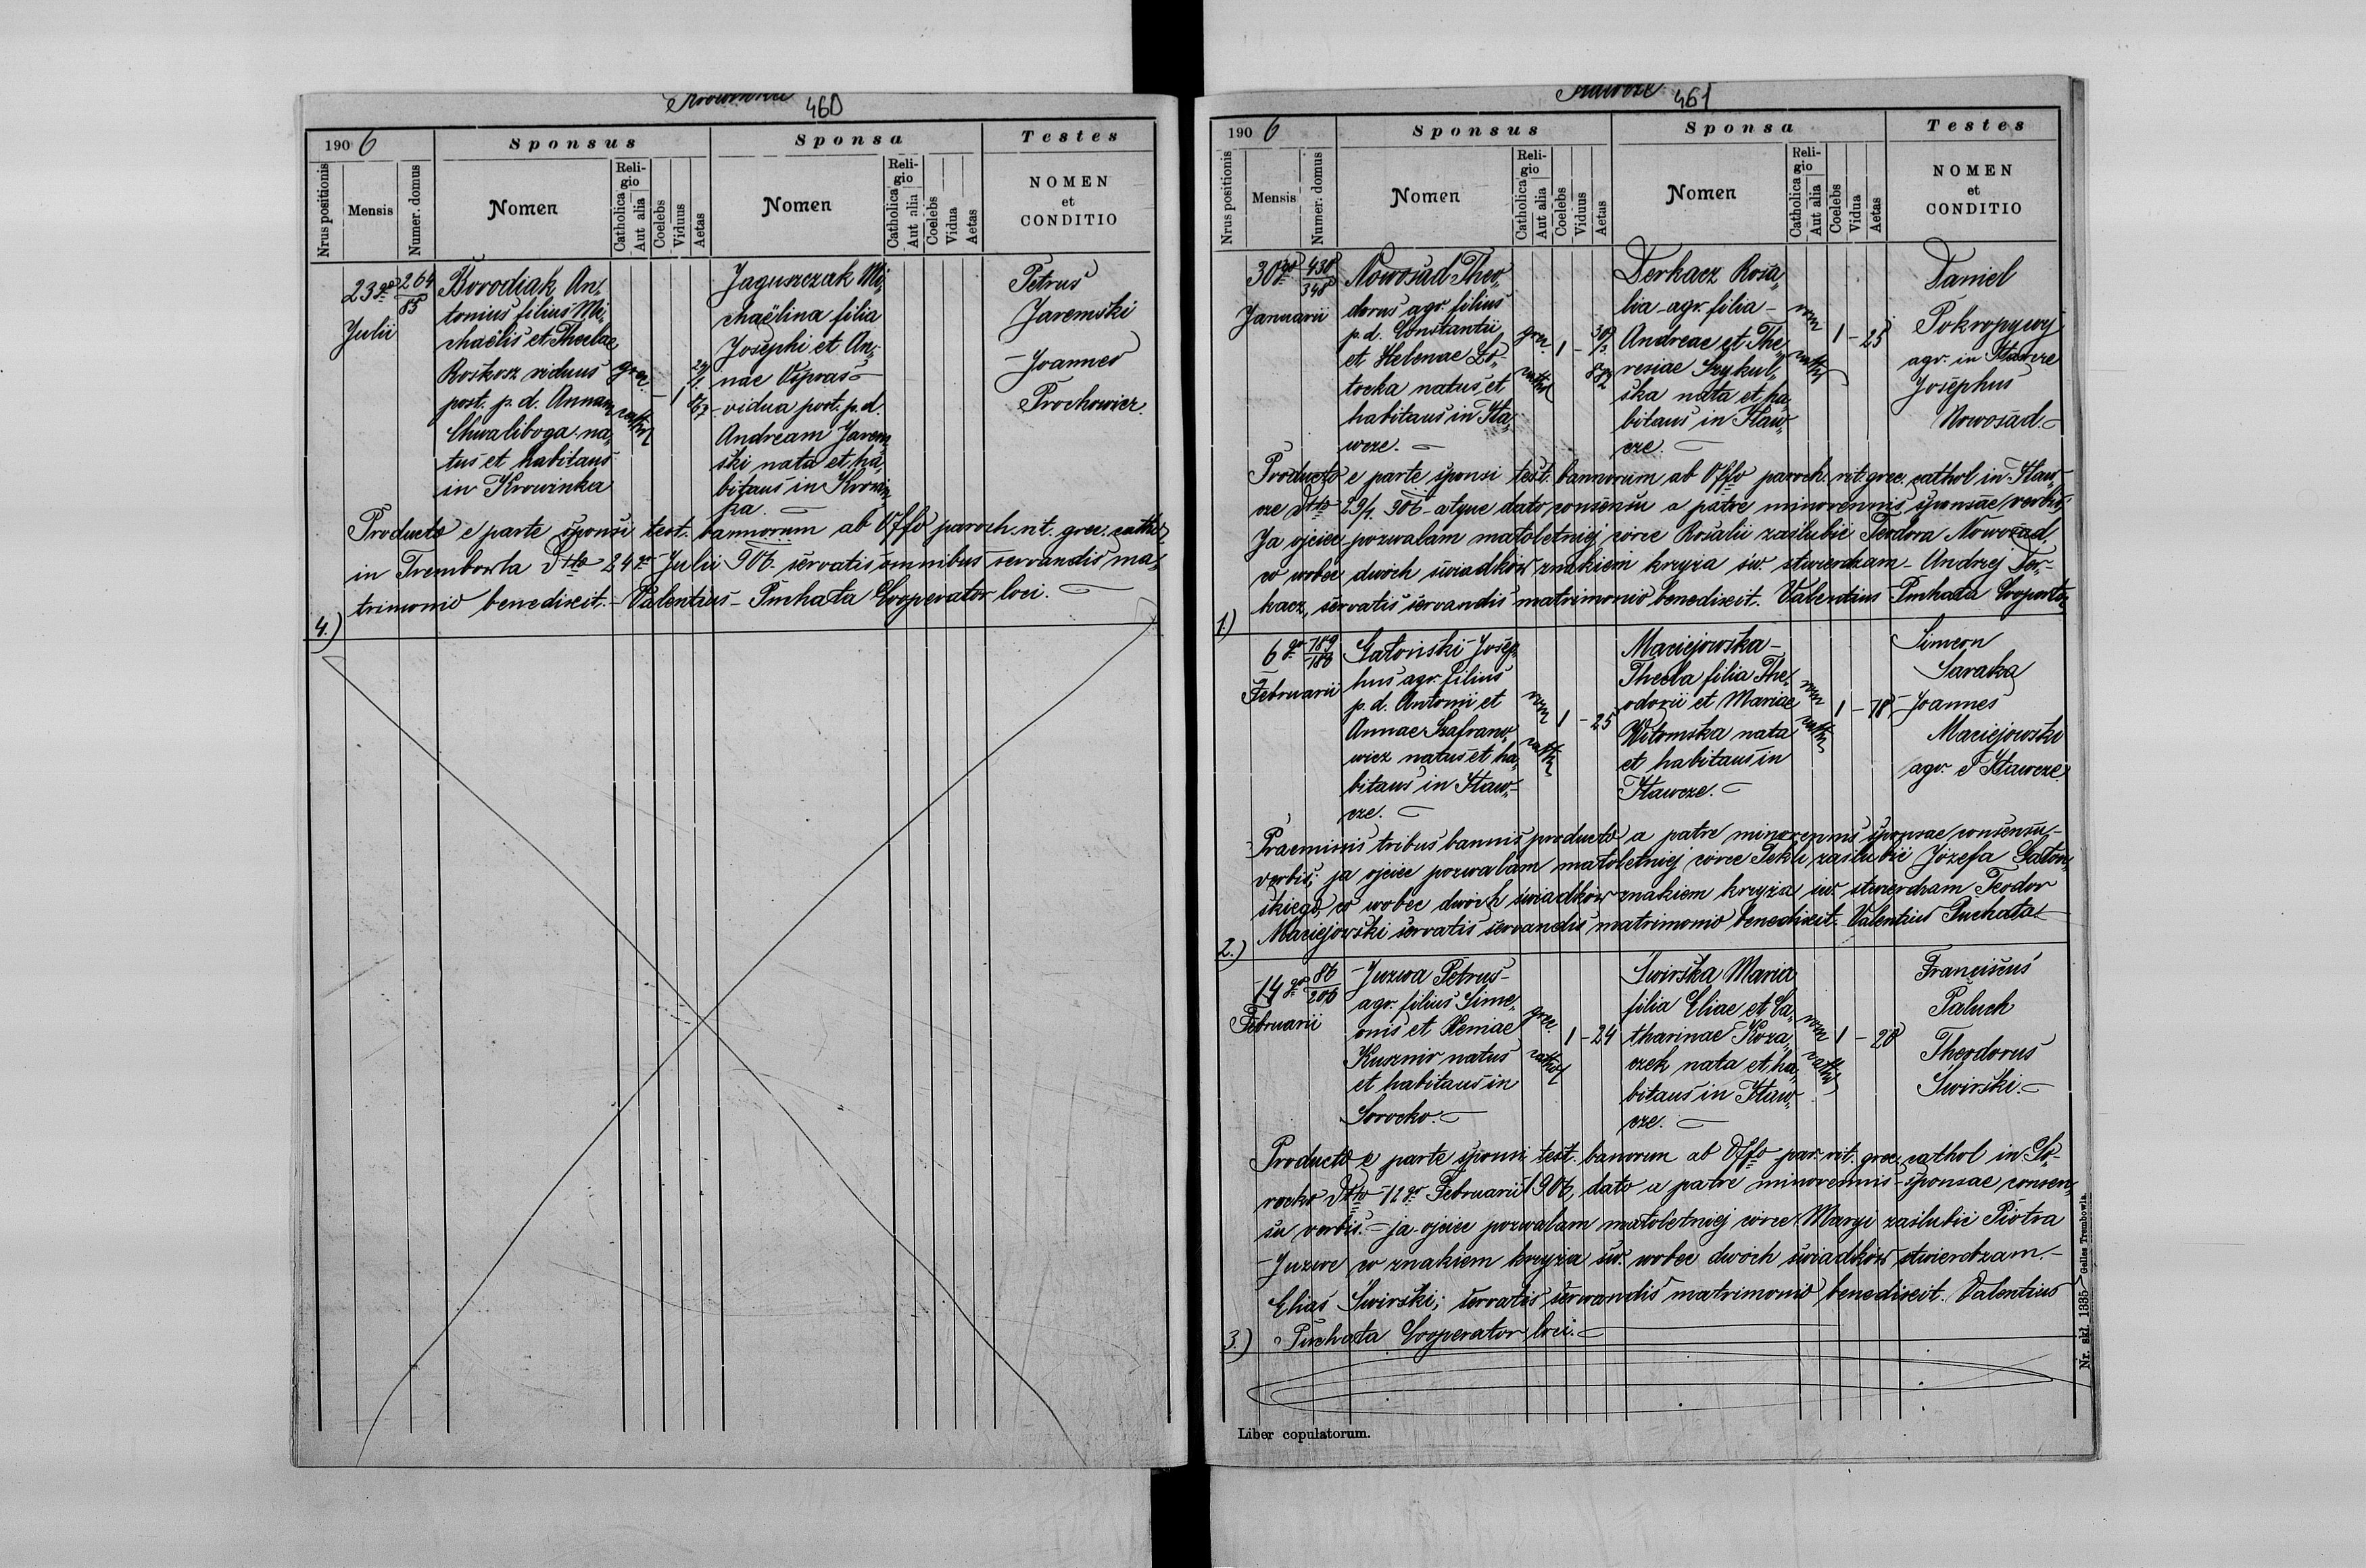 Krowinka 460
1906
Sponsus
Sponsa
Testes
Nrus positionis
Mensis
Numer. domus
Nomen
Religio
Catholica
Aut alia
Coelebs
Viduus
Aetas
Nomen
Religio
Catholica
Aut alia
Coelebs
Vidua
Aetas
NOMEN
et
CONDITIO
4.)
23go
Julii
264
85
Borodiak An-
tonius filius Mi-
chaëlis et Theclae
Roskosz viduus
post. p. d. Annam
Chwaliboga na-
tus et habitans
in Krowinka
grec.
cathol
1
Jaguszczak Mi-
chaëlina filia
Josephi et An-
nae
vidua post. p. d.
Andream Jarem-
ski nata et ha-
bitans in Krowin-
ka.
Petrus
Jaremski
Joannes
Prochowicz.
Producto e parte sponsi test. bannorum ab Offo paroch. rit. grec. cathol
in Trembowla dtto 24go Julii 906. servatis omnibus servandis ma-
trimonio benedixit. Valentius Puchała Cooperator loci.
Stawcze 461
1906
Sponsus
Sponsa
Testes
Nrus positionis
Mensis
Numer. domus
Nomen
Religio
Catholica
Aut alia
Coelebs
Viduus
Aetas
Nomen
Religio
Catholica
Aut alia
Coelebs
Vidua
Aetas
NOMEN
et
CONDITIO
1.)
30go
Januarii
430
348
Nowosad Theo-
dorus agr. filius
p. d. Constantii
et Helenae Ło-
tocka natus et
habitans in Sta-
wcze.
grec.
cathol
1 -
Derhacz Rosa-
lia agr. filia
Andreae et The-
resiae Szykul-
ska nata et ha-
bitans in Staw-
cze.
rom
cathol
1 - 23
Daniel
Pokropywyj
agr. in Stawcze
Josephus
Nowosad.
Producto e parte sponsi test. bannorum ab Offo paroch. rit. grec. cathol in Staw-
cze dtto 29/1. 906 atque dato consensu a patre minorennis sponsae verbis
Ja ojciec pozwalam małoletniej córce Rosalii zaślubić Teodora Nowosad,
co wobec dwóch świadków znakiem krzyża św. stwierdzam - Andrzej Der-
hacz, servatis servandis matrimonio benedixit. Valentius Puchała Cooperator
2.)
6go
Februarii
189
188
Gatoński Josep-
hus agr. filius
p. d. Antonii et
Annae Szafrano-
wicz natus et ha-
bitans in Staw-
cze.
rom
cathol
1 - 25
Maciejowska
Thecla filia The-
odorii et Mariae
Witomska nata
et habitans in
Stawcze.
rom
cathol
1 - 18
Simeon
Saraka
Joannes
Maciejowski
agr. e Stawcze.
Praemissis tribus bannis producto a patre minorennis sponsae consensu
verbis: ja ojciec pozwalam małoletniej córce Tekli zaślubić Józefa Gatoń-
skiego, co wobec dwóch świadków znakiem krzyża św. stwierdzam Teodor
Maciejowski servatis servandis matrimonio benedixit. Valentius Puchała
3.)
14go
Februarii
86
206
Juzwa Petrus
agr. filius Sime-
onis et Xeniae
Kusznir natus
et habitans in
Sorocko.
grec.
cathol
1 - 24
Swirska Maria
filia Eliae et Ca-
tharinae Koza-
czek nata et ha-
bitans in Staw-
cze.
rom
cathol
1 - 20
Franciscus
Paluch
Theodorus
Swirski.
Producto e parte sponsi test. banorum ab Offo par. rit. grec. cathol in So-
rocko dtto 12go Februarii 906, dato a patre minorennis sponsae consen-
su verbis: ja ojciec pozwalam małoletniej córce Maryi zaślubić Piotra
Juzwe co znakiem krzyża św. wobec dwóch świadków stwierdzam.
Elias Swirski; servatis servandis matrimonio benedixit. Valentius
Puchała Cooperator loci.
Liber copulatorum.
Nr. skł. 1335 Gelles Trembowla.